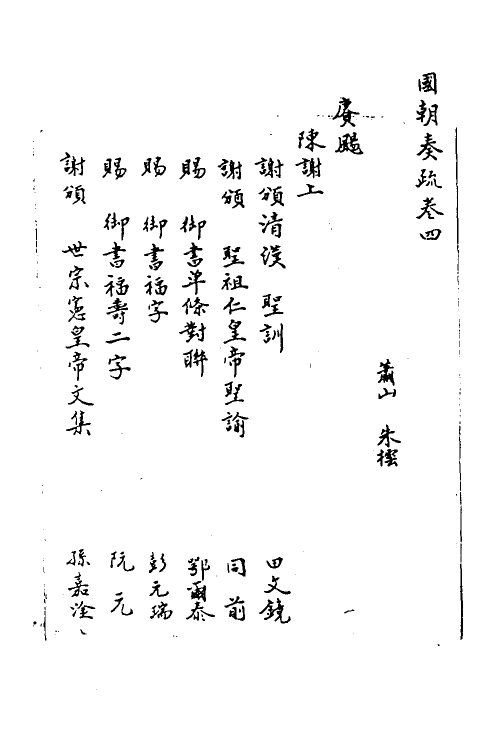 國朝奏疏卷四
蕭山　朱樫
賡颺
陳謝上
謝頒清漢　聖訓　田文鏡
謝頒　聖祖仁皇帝聖諭　同前
賜　御書單條對聯　鄂爾泰
賜　御書福字　彭元瑞
賜　御書福壽二字　阮元
謝頒　世宗憲皇帝文集　孫嘉淦